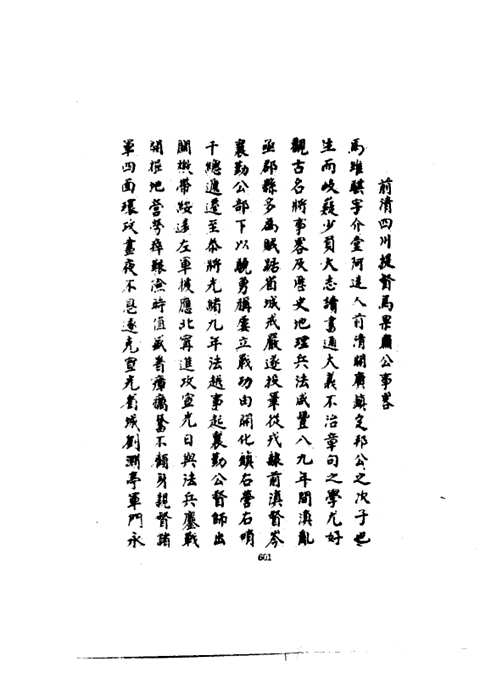 前清四川提督馬果肅公事畧
馬維騏字介堂阿迷人前清開廣鎮定邦公之次子也
生而岐嶷少負大志讀書通大義不治章句之學尤好
觀古名將事畧及歷史地理兵法咸豐八九年間滇亂
亟郡縣多為賊踞省城戒嚴遂投筆從戎隸前滇督岑
襄勤公部下以驍勇稱屢立戰功由開化鎮右營右哨
千總遞遷至參將光緒九年法越事起襄勤公督師出
關檄帶綏遠左軍援應北甯進攻宣光日與法兵鏖戰
開挖地營勞瘁艱險時值盛暑瘴癘誓不顧身親督諸
軍四面環攻晝夜不息遂克宣光省城劉淵亭軍門永
601